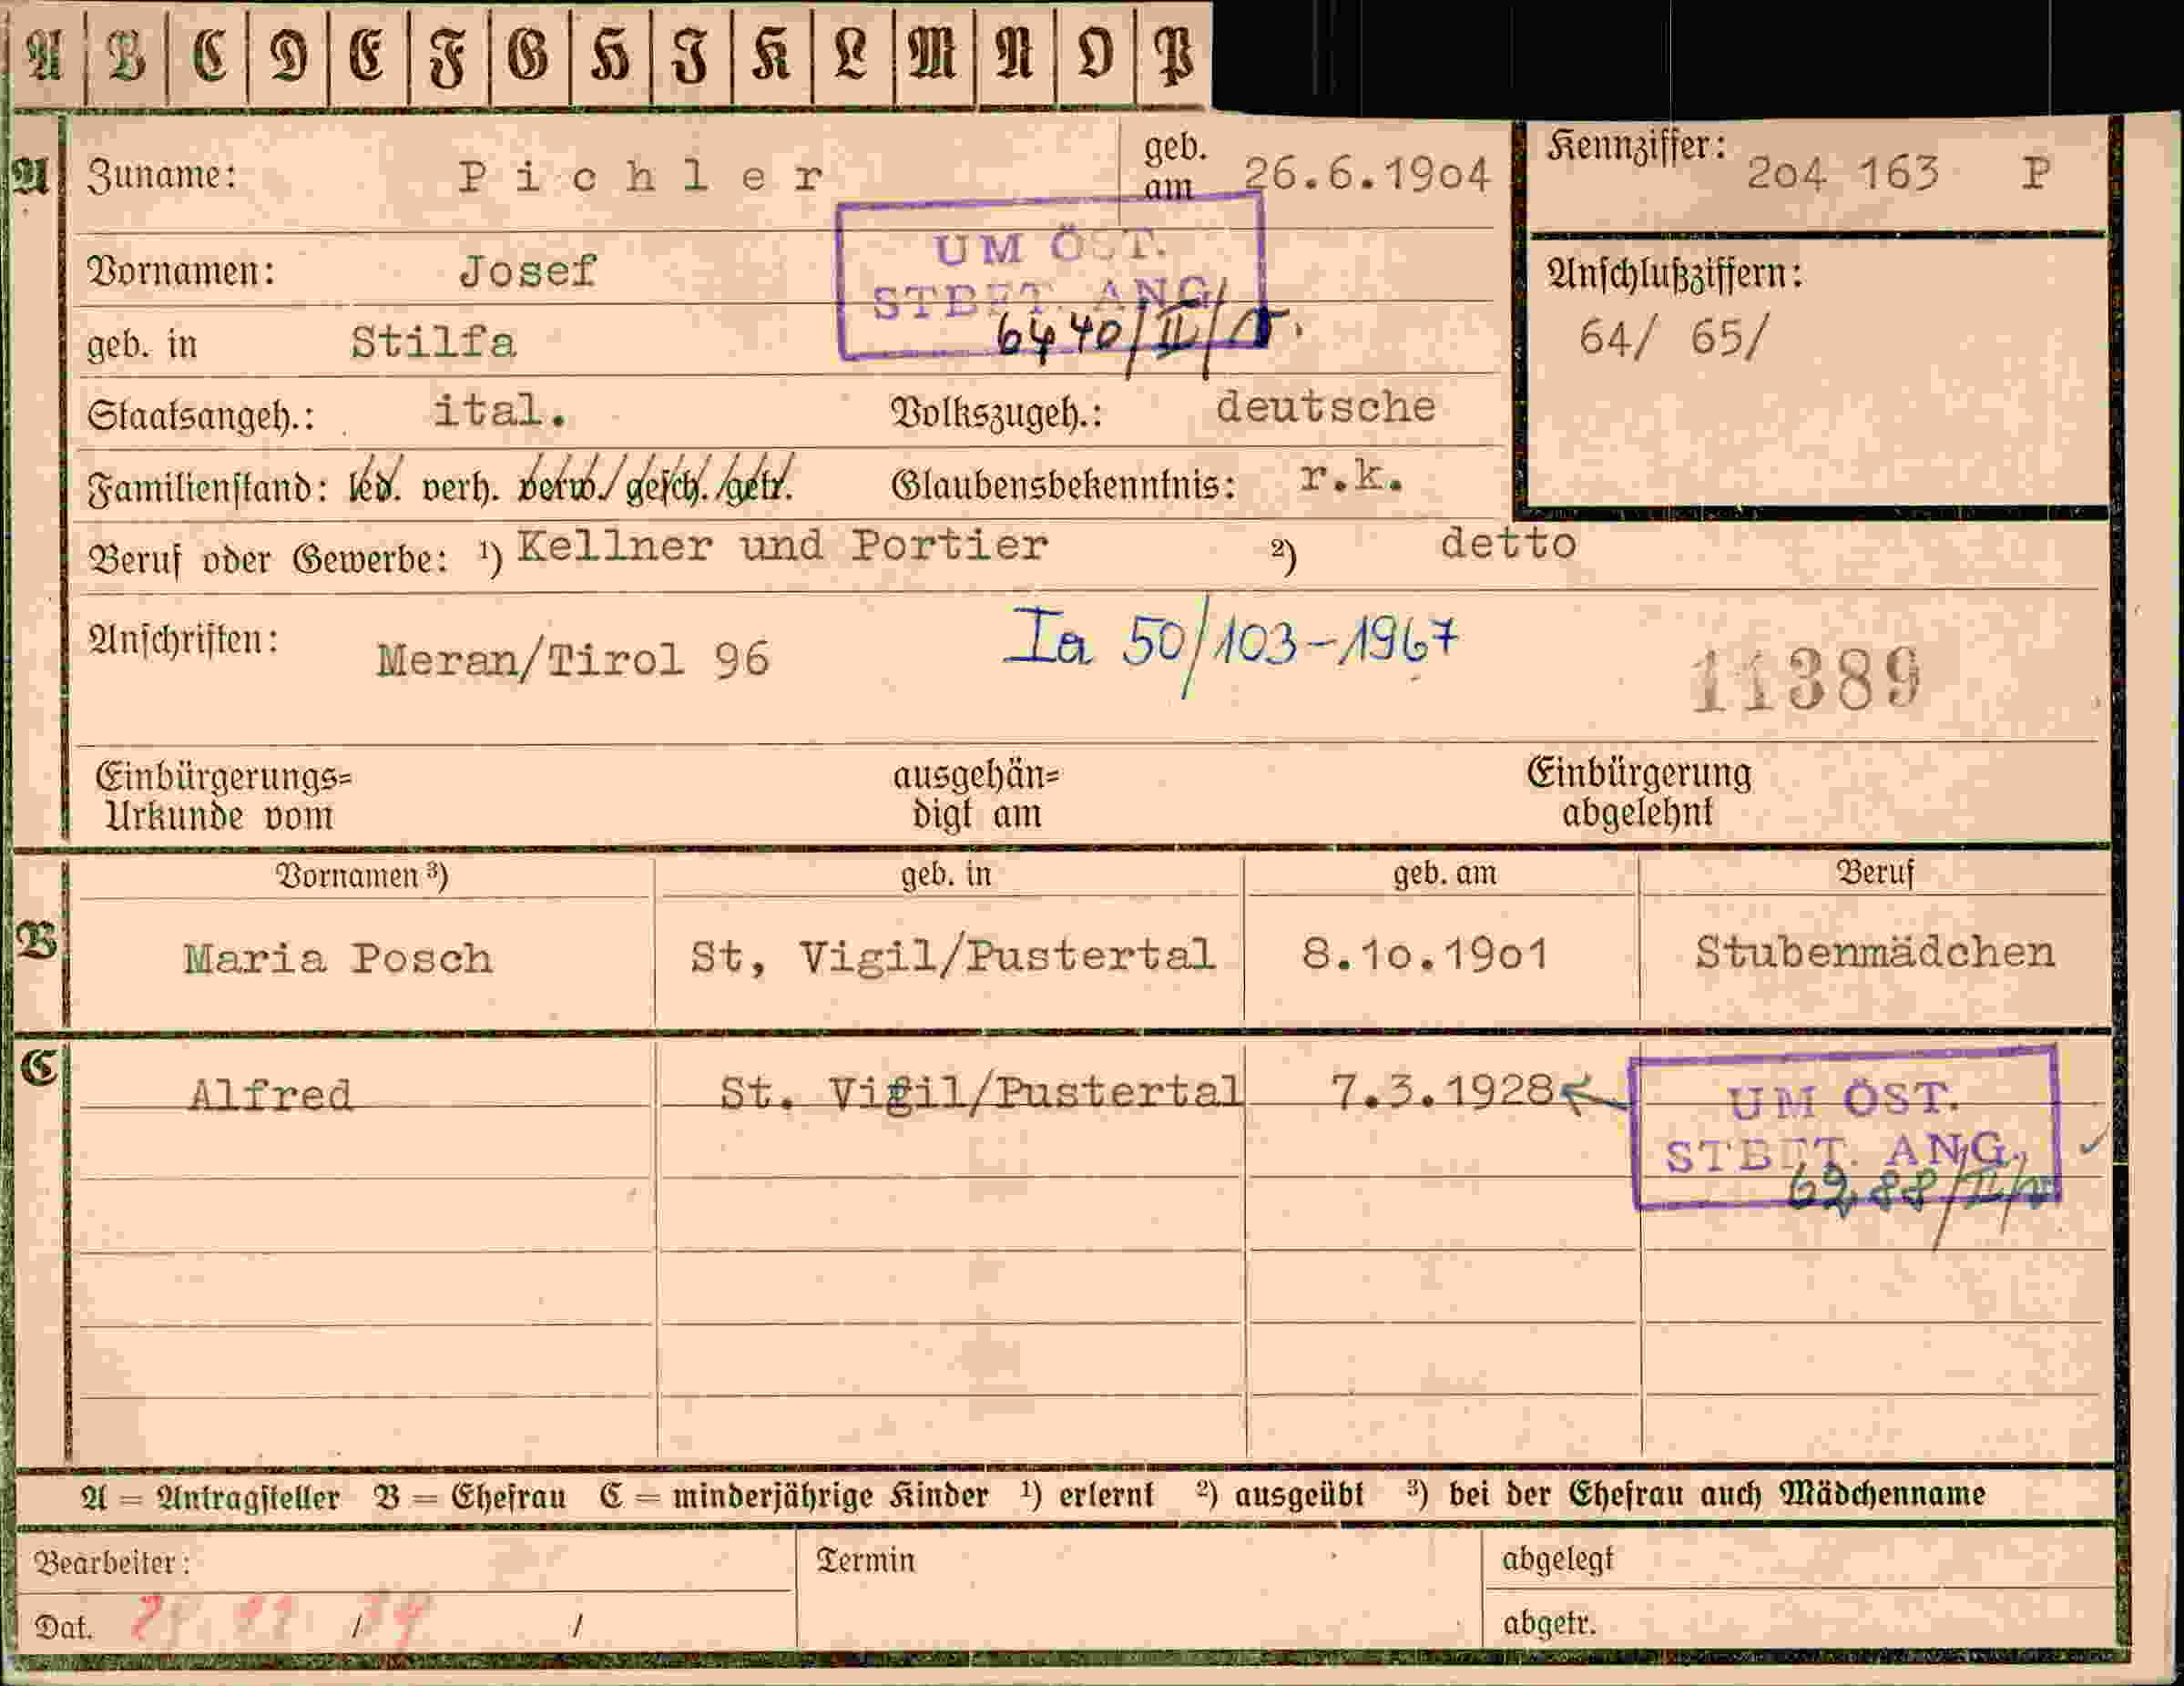 A B C D E F G H I K L M N O P
A Zuname: Pichler geb. am 26.6.19o4 Kennziffer: 2o4 163 P
UM ÖST.
STBET. ANG.
6440/II/
Vornamen: Josef Anschlußziffern:
geb. in Stilfa 64/ 65/
Staatsangeh.: ital. Volkszugeh.: deutsche
Familienstand: led. verh. verw./gesch./getr. Glaubensbekenntnis: r.k.
Beruf oder Gewerbe: ¹) Kellner und Portier ²) detto
Anschriften: Meran/Tirol 96 Ia 50/103-1967
11389
Einbürgerungs= ausgehän= Einbürgerung
Urkunde vom digt am abgelehnt
Vornamen ³) geb. in geb. am Beruf
B Maria Posch St, Vigil/Pustertal 8.1o.19o1 Stubenmädchen
C Alfred St. Vigil/Pustertal 7.3.1928
UM ÖST.
STBET. ANG.
6988/II/
A = Antragsteller B = Ehefrau C = minderjährige Kinder ¹) erlernt ²) ausgeübt ³) bei der Ehefrau auch Mädchenname
Bearbeiter: Termin abgelegt
Dat. / / abgetr.